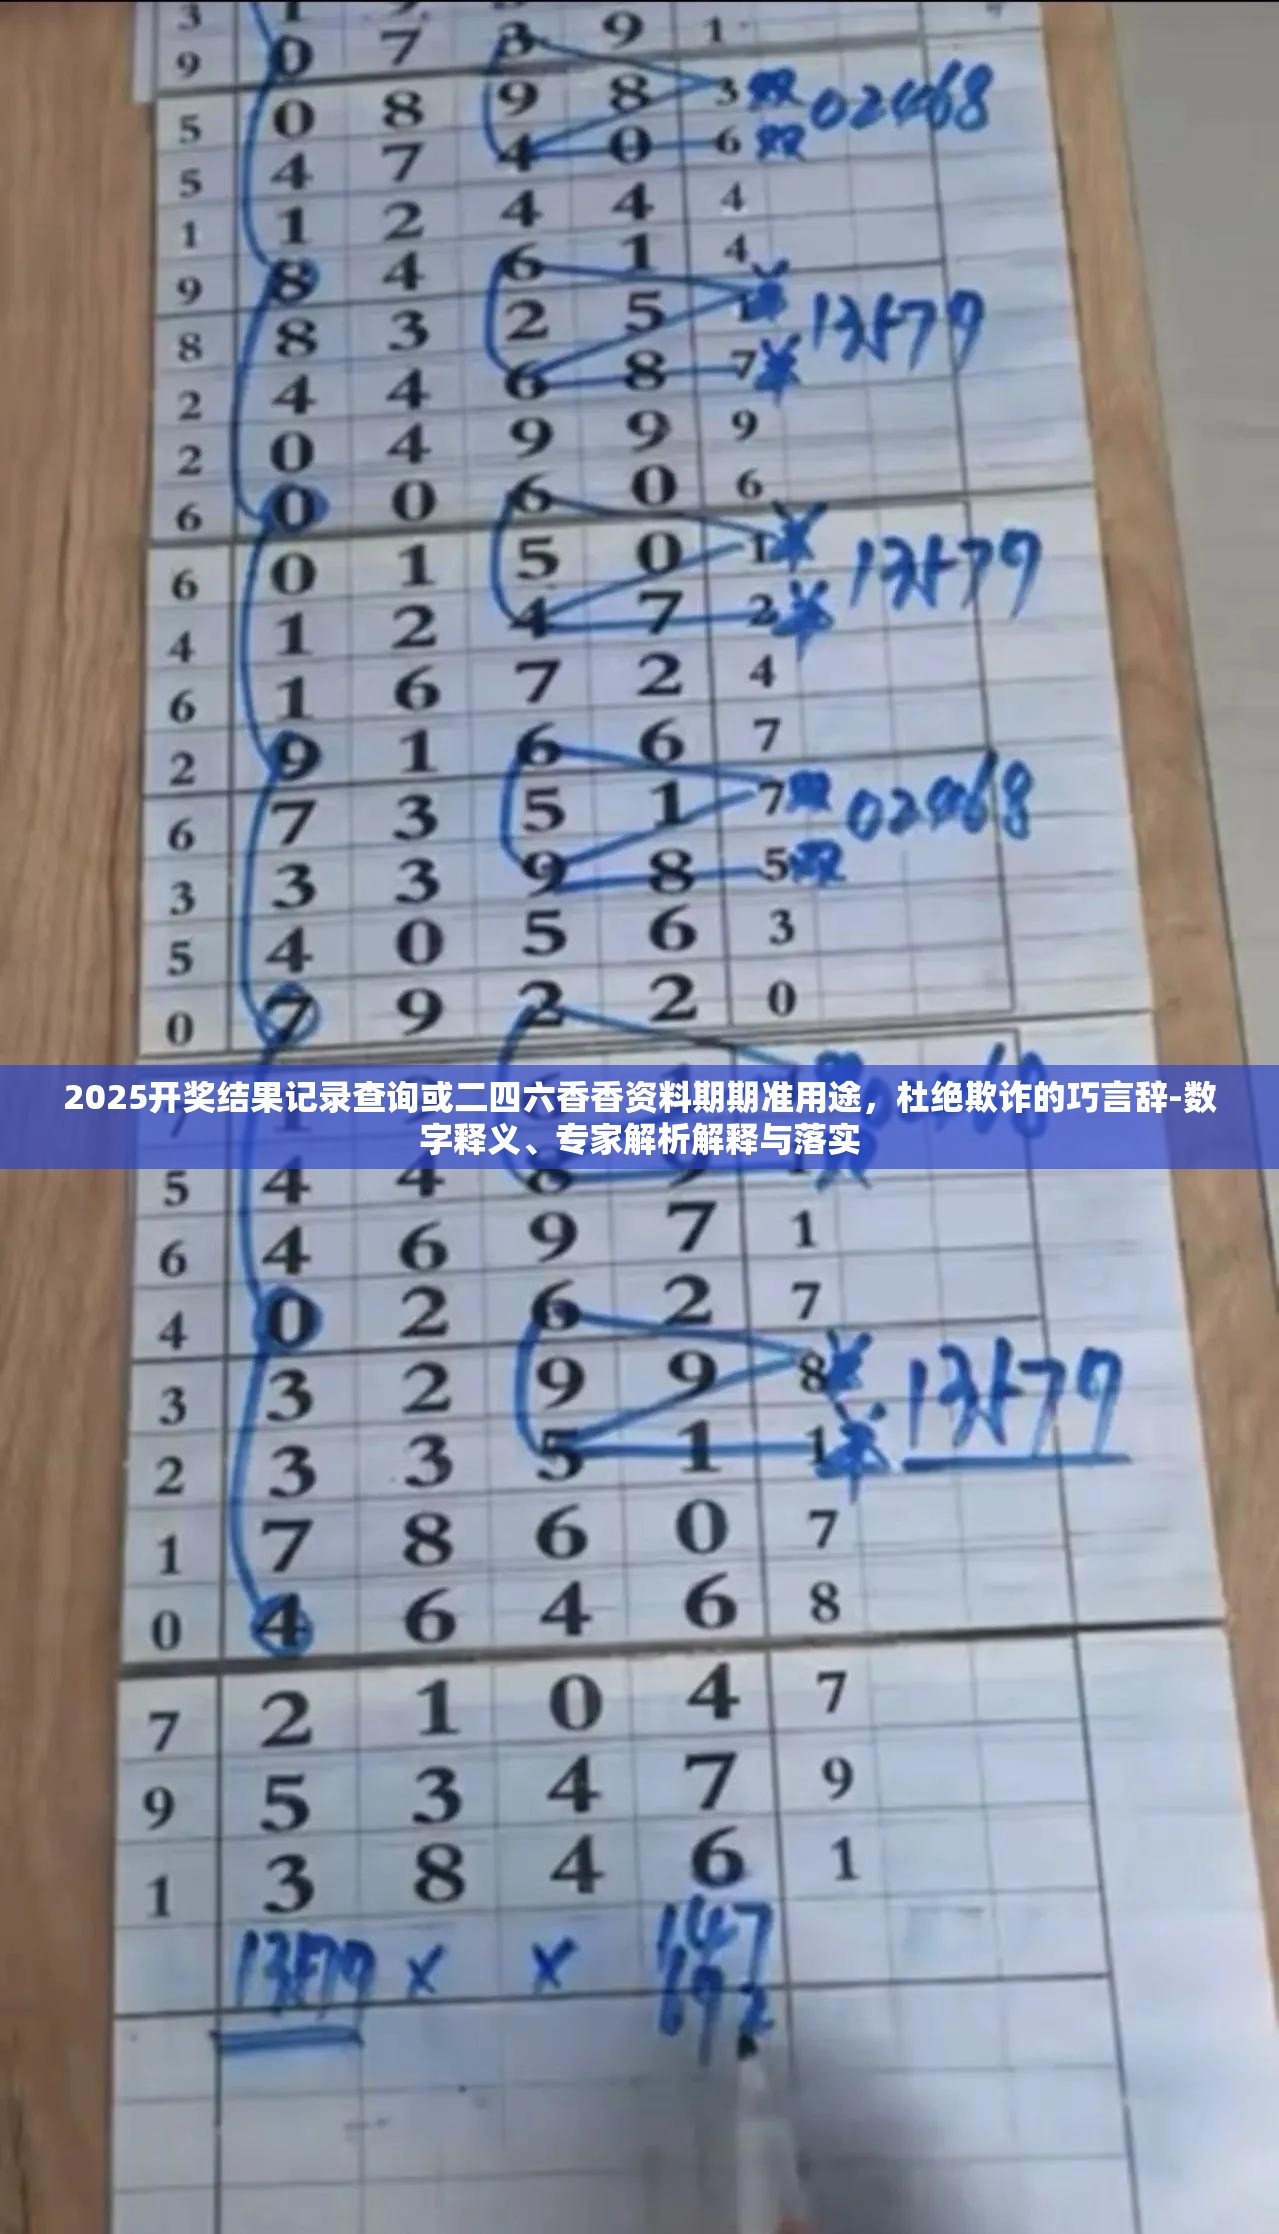 3 1
9 0 7 3 9 1
5 0 8 9 8 3 双 02468
5 4 7 4 0 6 双
1 1 2 4 4 4
9 8 4 6 1 4
8 8 3 2 5 1 单 13579
2 4 4 6 8 7 单
2 0 4 9 9 9
6 0 0 6 0 6
6 0 1 5 0 1 单 13579
4 1 2 4 7 2 单
6 1 6 7 2 4
2 9 1 6 6 7
6 7 3 5 1 7 双 02468
3 3 3 9 8 5 双
5 4 0 5 6 3
0 7 9 2 2 0
2025开奖结果记录查询或二四六香香资料期期准用途，杜绝欺诈的巧言辞-数
字释义、专家解析解释与落实
5 4 4 8 9 1
6 4 6 9 7 1
4 0 2 6 2 7
3 3 2 9 9 8 单 13579
2 3 3 5 1 1 单
1 7 8 6 0 7
0 4 6 4 6 8
7 2 1 0 4 7
9 5 3 4 7 9
1 3 8 4 6 1
13579 × × 147
692